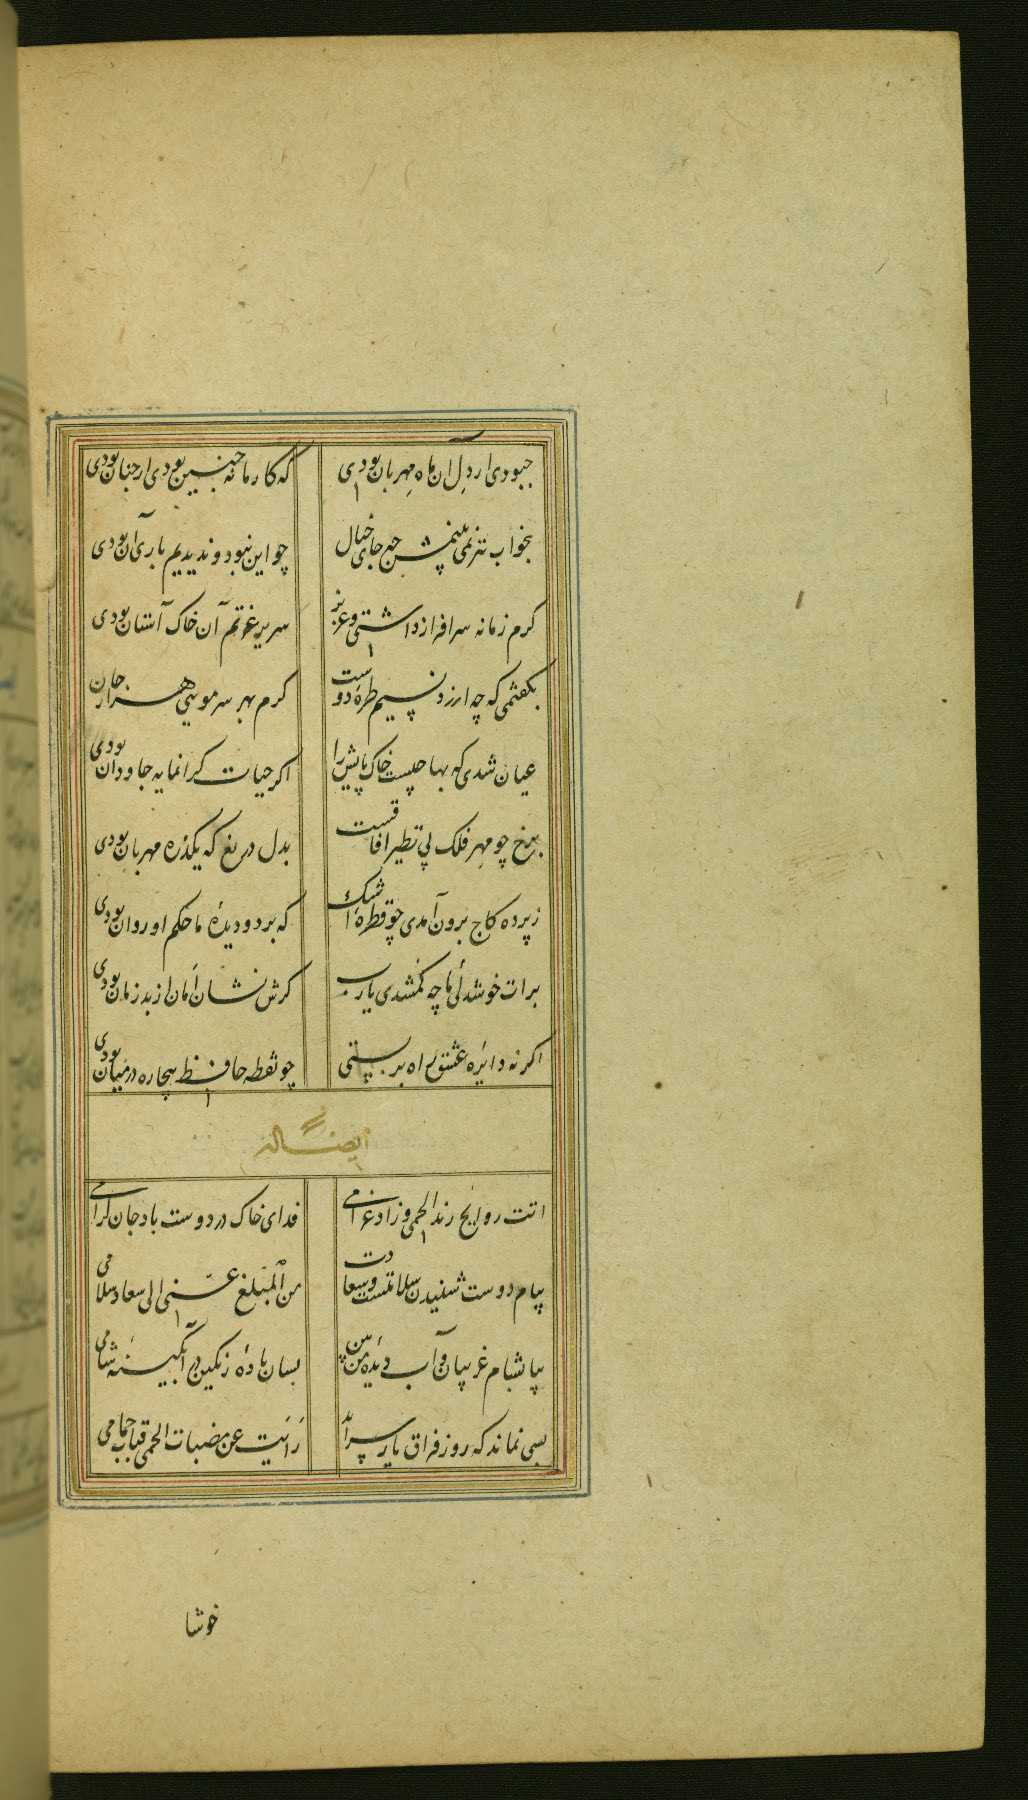 چبودی ار دل آن ماه مهربان بودی که کار ما نه چنین بودی ار چنان بودی
بخواب نیز نمی بینمش چه جای خیال چو این نبود و ندیدیم باری آن بودی
کرم زمانه سرافراز داشتی و عزیز سریر عزتم آن خاک آستان بودی
بکفتمی که چه ارزد نسیم طره دوست کرم بهر سر مویی هزار جان بودی
عیان شدی که بها چیست خاک پایش را اکر حیات کرانمایه جاودان بودی
برخ چو مهر فلک بی نظیر آفاقست بدل دریغ که یکذره مهربان بودی
ز پرده کاج برون آمدی چو قطره اشک که بر دو دیده ما حکم او روان بودی
برات خوشدلی ما چه کم شدی یارب کرش نشان امان از بد زمان بودی
اکر نه دایره عشق راه بر بستی چو نقطه حافظ بیچاره در میان بودی
ایضا له
اتت روایح رند الحمی و زاد غرامی فدای خاک در دوست باد جان کرامی
پیام دوست شنیدن سلامتست و سعادت من المبلغ عنی الی سعاد سلامی
بیا بشام غریبان و آب دیده من بین بسان باده رنکین در آبکینه شامی
بسی نماند که روز فراق یار سر آید رایت عن هضبات الحمی قباب خیامی
خوشا